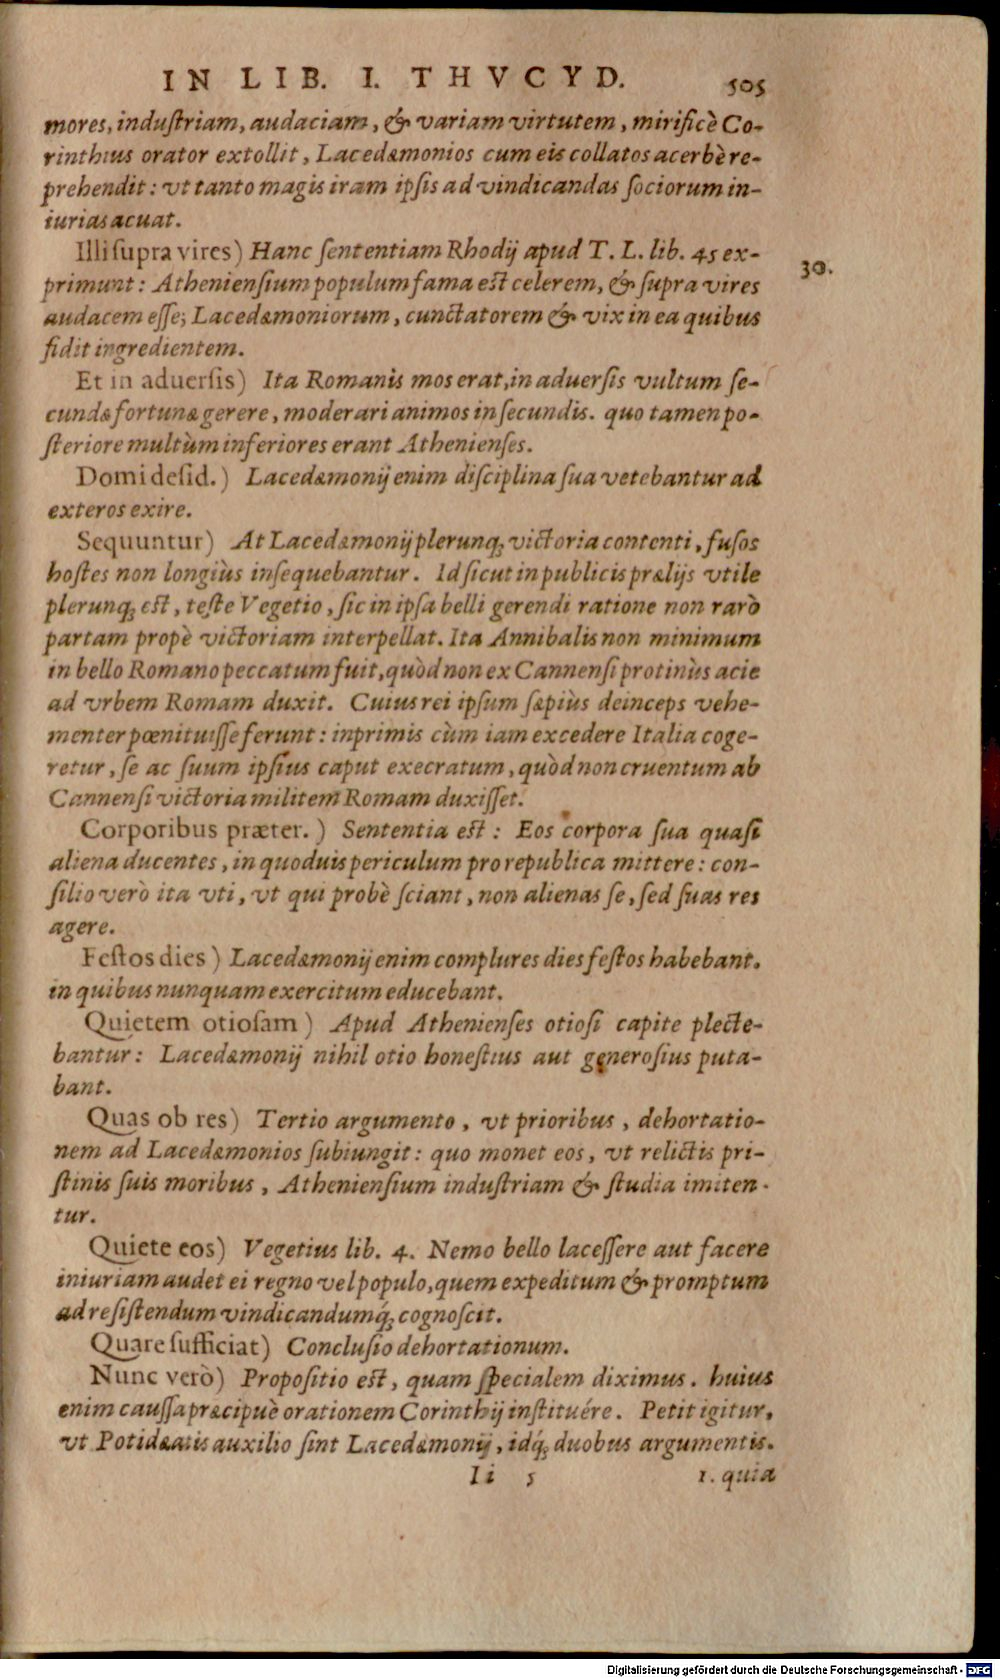 IN LIB. I. THVCYD. 505
mores, induſtriam, audaciam, & variam virtutem, mirificè Co-
rinthius orator extollit, Lacedæmonios cum eis collatos acerbè re-
prehendit: vt tanto magis iram ipſis ad vindicandas ſociorum in-
iurias acuat.
Illi ſupra vires) Hanc ſententiam Rhodij apud T. L. lib. 45 ex-
30.
primunt: Athenienſium populum fama eſt celerem, & ſupra vires
audacem eſſe; Lacedæmoniorum, cunctatorem & vix in ea quibus
fidit ingredientem.
Et in aduerſis) Ita Romanis mos erat, in aduerſis vultum ſe-
cundæ fortunæ gerere, moderari animos in ſecundis. quo tamen po-
ſteriore multùm inferiores erant Athenienſes.
Domi deſid.) Lacedæmonij enim diſciplina ſua vetebantur ad
exteros exire.
Sequuntur) At Lacedæmonij plerunq; victoria contenti, fuſos
hoſtes non longiùs inſequebantur. Id ſicut in publicis prælijs vtile
plerunq; eſt, teſte Vegetio, ſic in ipſa belli gerendi ratione non rarò
partam propè victoriam interpellat. Ita Annibalis non minimum
in bello Romano peccatum fuit, quòd non ex Cannenſi protinùs acie
ad vrbem Romam duxit. Cuius rei ipſum ſæpiùs deinceps vehe-
menter pœnituiſſe ferunt: inprimis cùm iam excedere Italia coge-
retur, ſe ac ſuum ipſius caput execratum, quòd non cruentum ab
Cannenſi victoria militem Romam duxiſſet.
Corporibus præter.) Sententia eſt: Eos corpora ſua quaſi
aliena ducentes, in quoduis periculum pro republica mittere: con-
ſilio verò ita vti, vt qui probè ſciant, non alienas ſe, ſed ſuas res
agere.
Feſtos dies) Lacedæmonij enim complures dies feſtos habebant.
in quibus nunquam exercitum educebant.
Quietem otioſam) Apud Athenienſes otioſi capite plecte-
bantur: Lacedæmonij nihil otio honeſtius aut generoſius puta-
bant.
Quas ob res) Tertio argumento, vt prioribus, dehortatio-
nem ad Lacedæmonios ſubiungit: quo monet eos, vt relictis pri-
ſtinis ſuis moribus, Athenienſium induſtriam & ſtudia imiten-
tur.
Quiete eos) Vegetius lib. 4. Nemo bello laceſſere aut facere
iniuriam audet ei regno vel populo, quem expeditum & promptum
ad reſiſtendum vindicandumq́; cognoſcit.
Quare ſufficiat) Concluſio dehortationum.
Nunc verò) Propoſitio eſt, quam ſpecialem diximus. huius
enim cauſſa præcipuè orationem Corinthij inſtituére. Petit igitur,
vt Potidæatis auxilio ſint Lacedæmonij, idq́; duobus argumentis.
Ii 5 1. quia
Digitalisierung gefördert durch die Deutsche Forschungsgemeinschaft - DFG